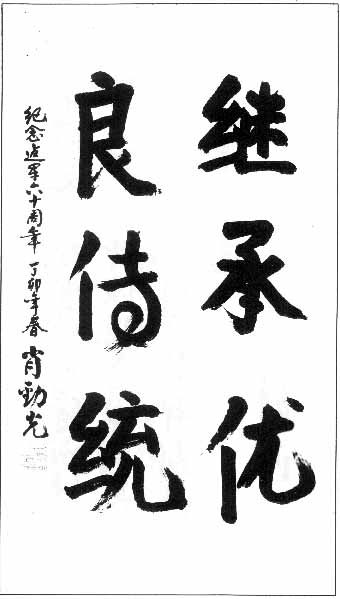 继承优
良传统
纪念建军六十周年 丁卯年春 肖劲光